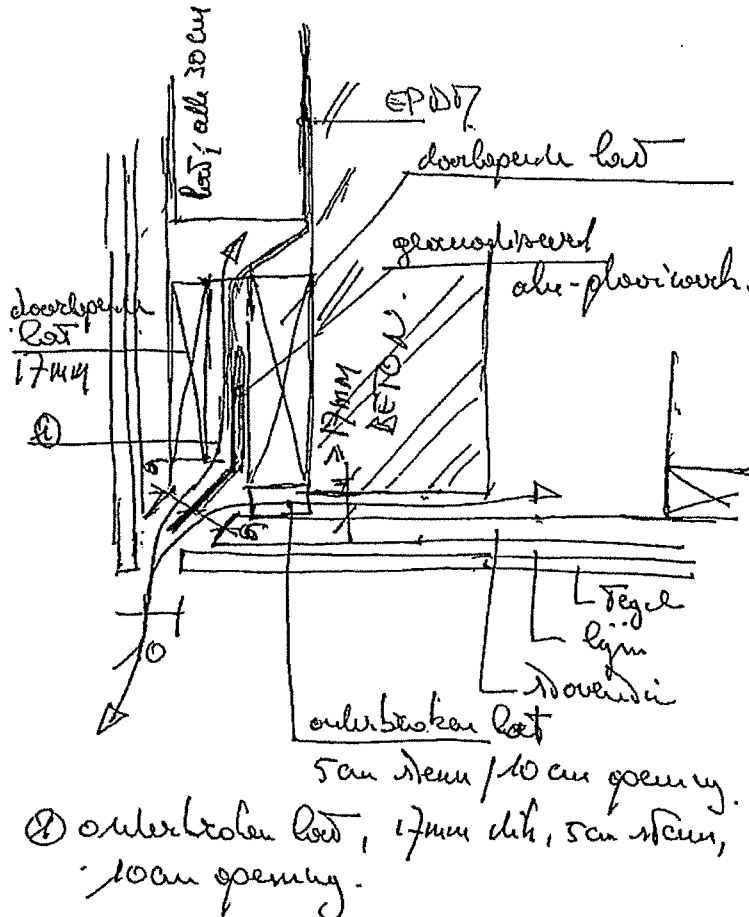 lat / alle 30 cm
EPDM
doorlopende lat
geanodiseerd
alu-plooiwerk.
doorlopende
lat
17mm
①
≥17mm
BETON.
6
6
10
Tegel
lijm
onderbroken lat
5cm steun / 10 cm opening.
① onderbroken lat, 17mm dik, 5cm steun,
10cm opening.